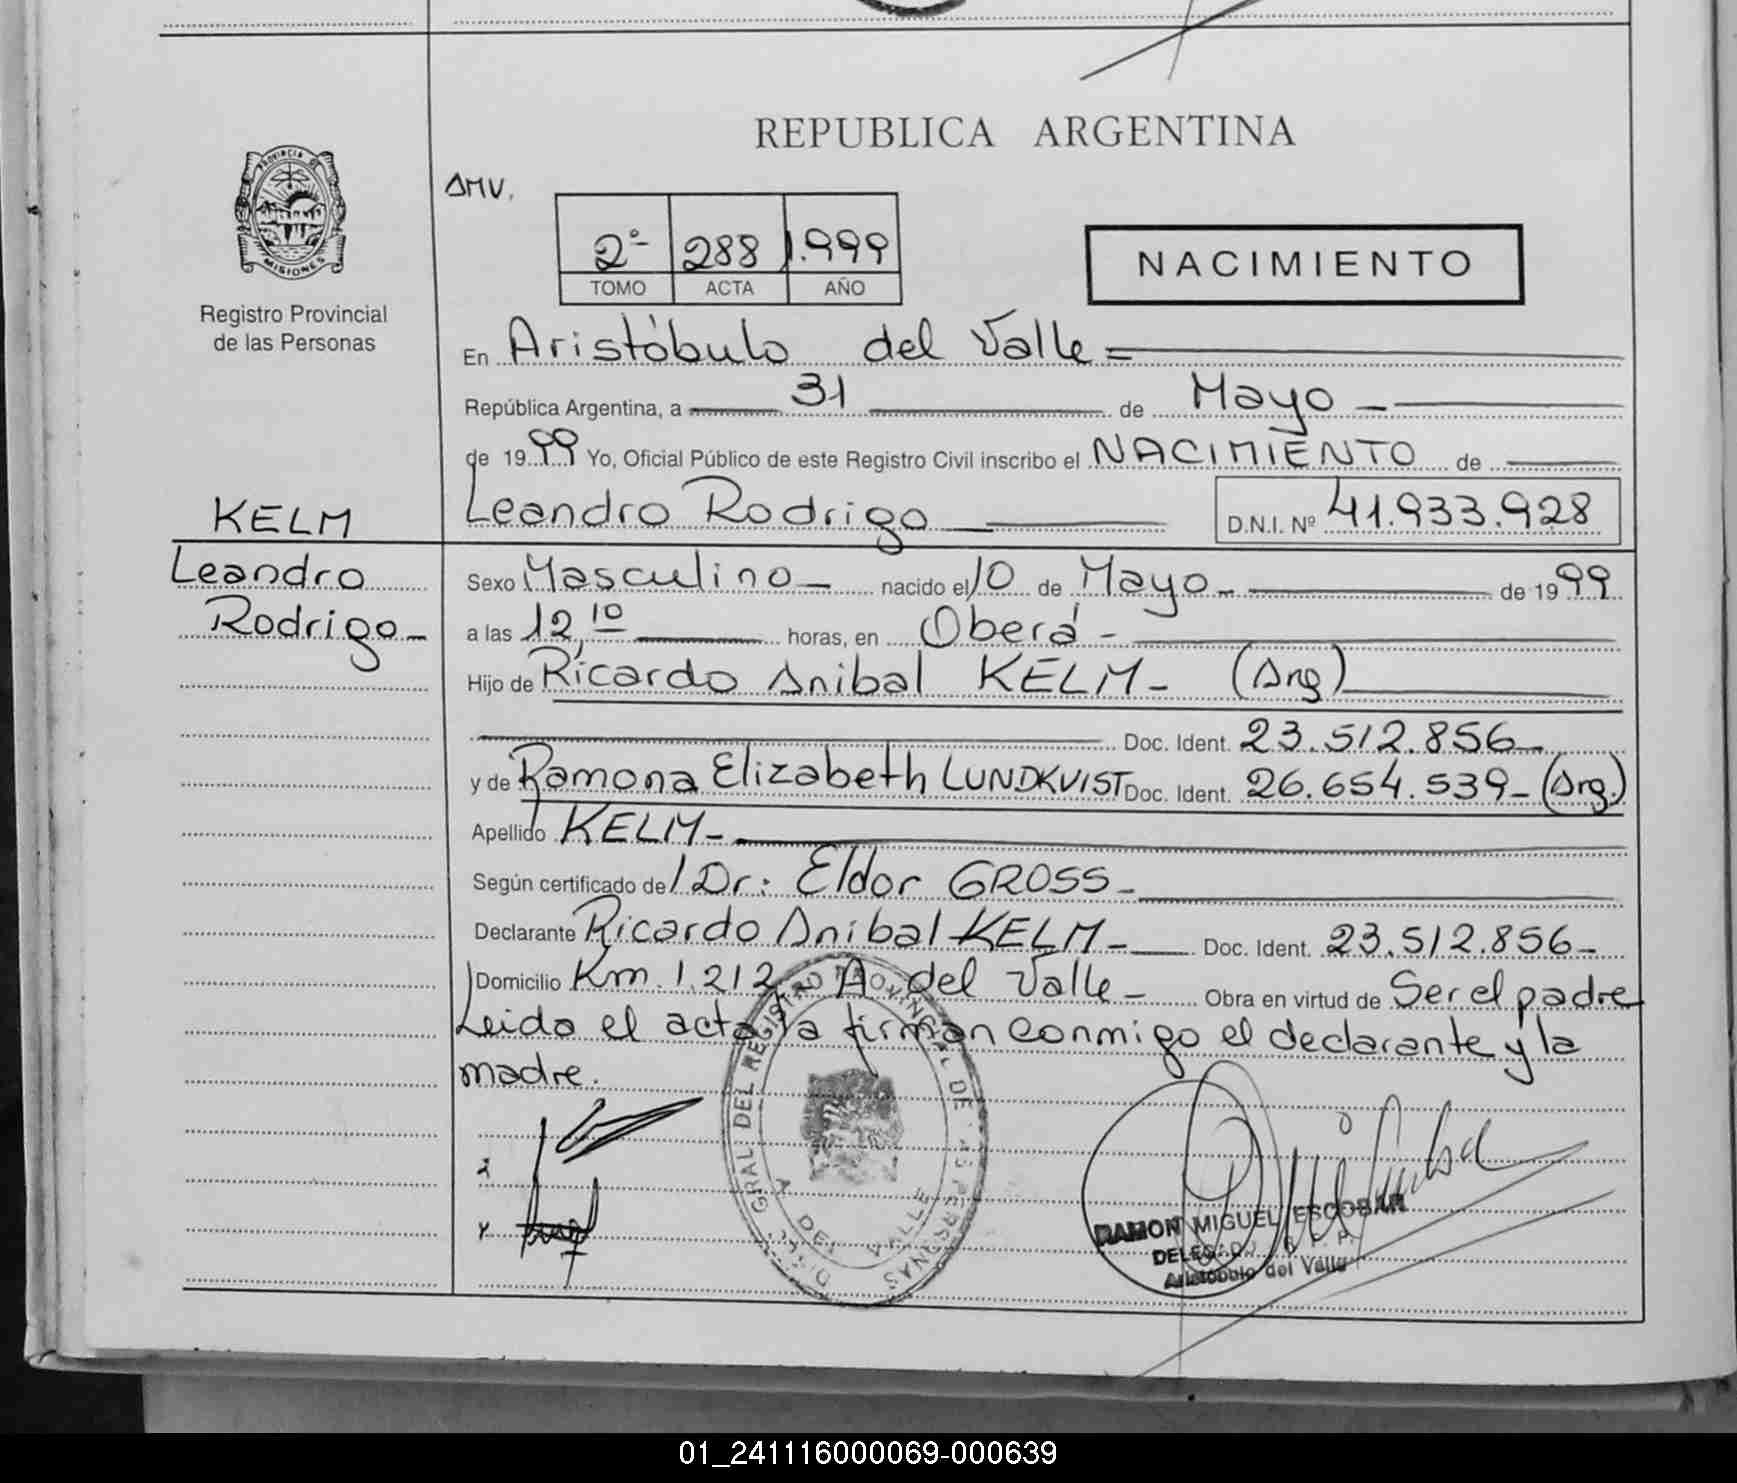 REPUBLICA ARGENTINA
PROVINCIA DE
MISIONES
Registro Provincial
de las Personas
AMV.
2º 288 1.999
TOMO ACTA AÑO
NACIMIENTO
En Aristóbulo del Valle =
República Argentina, a 31 de Mayo -
de 1999 Yo, Oficial Público de este Registro Civil inscribo el NACIMIENTO de
KELM
Leandro Rodrigo D.N.I. Nº 41.933.928
Leandro
Sexo Masculino - nacido el 10 de Mayo - de 1999
Rodrigo -
a las 12,10 horas, en Oberá -
Hijo de Ricardo Anibal KELM - (Arg)
Doc. Ident. 23.512.856 -
y de Ramona Elizabeth LUNDKVIST Doc. Ident. 26.654.539 - (Arg.)
Apellido KELM -
Según certificado de l Dr: Eldor GROSS -
Declarante Ricardo Anibal KELM - Doc. Ident. 23.512.856 -
Domicilio Km. 1.212 A del Valle - Obra en virtud de Ser el padre
Leida el acta la firman conmigo el declarante y la
madre.
GRAL DEL REGISTRO PROVINCIAL DE LAS PERSONAS
A DEL VALLE
RAMON MIGUEL ESCOBAR
Aristobulo del Valle
01_241116000069-000639